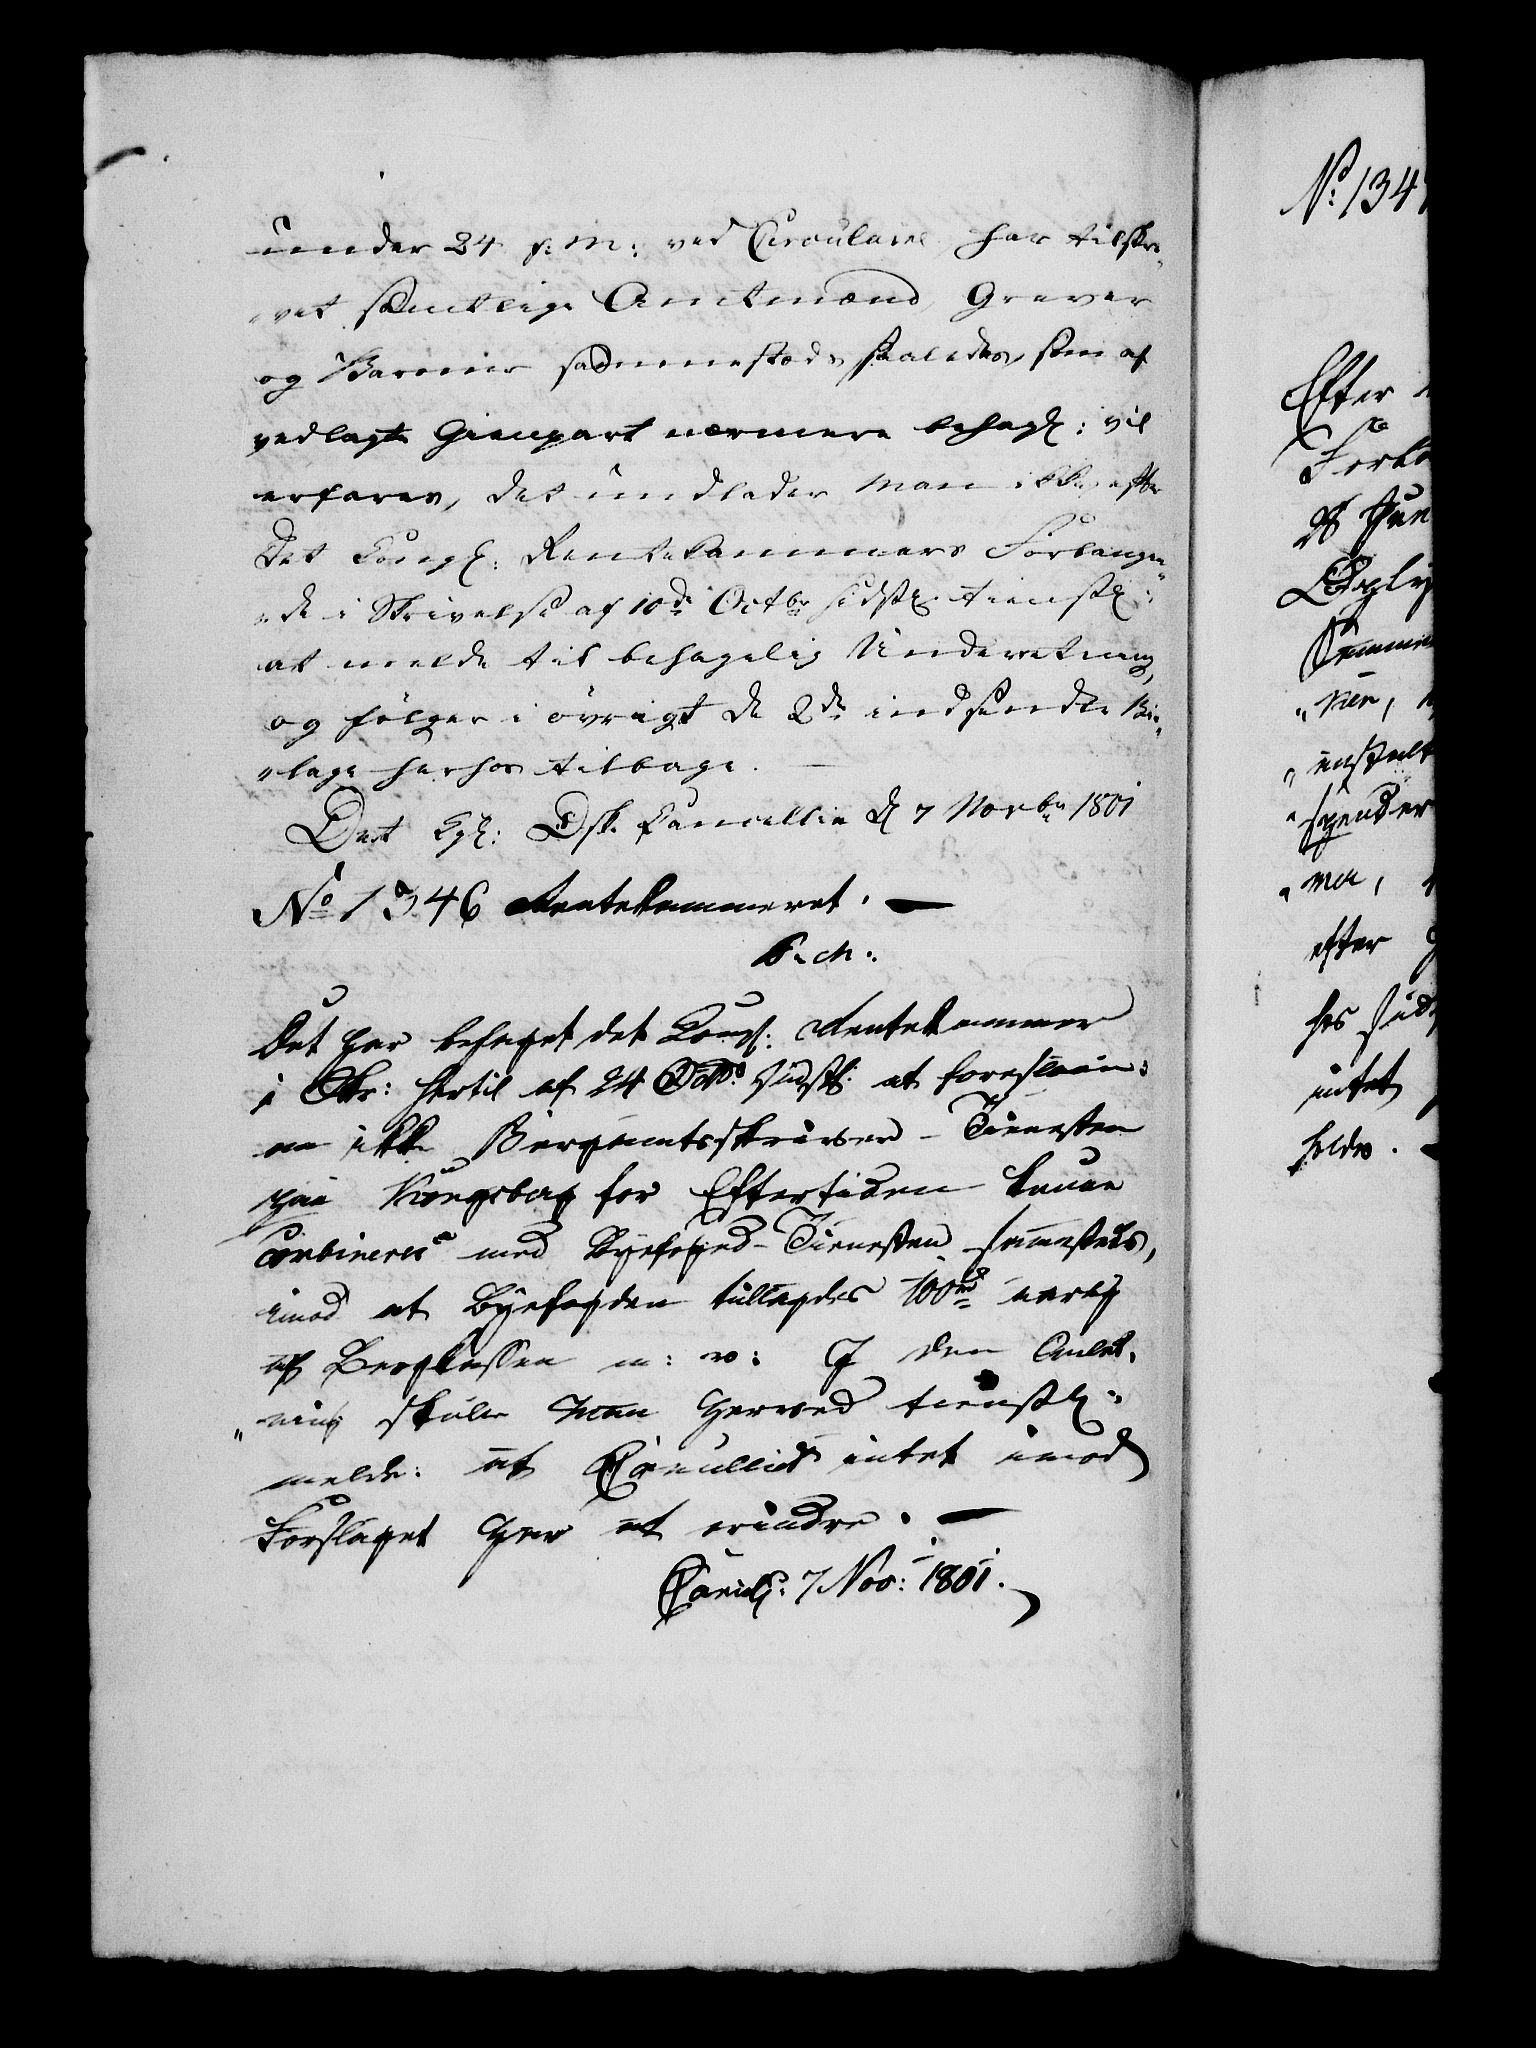 under 24 f: M: ved Circulaire har tilskre„
„vet samtlige Amtmænd, Grever
og Baroner sammesteds saaledes, som af
vedlagte Gienpart nærmere behagl: vil
erfares, det undlader man ikke efter
Det Kongl: Rentekammers Forlangen„
„de i Skrivelse af 10de Octbr sidstl: tienstl:
at melde til behagelig Underretning,
og følger i øvrigt de 2de indsendte Bi„
„lage herhos tilbage.
Det Kgl: Dsk. Cancellie d 7 Novbr 1801
No 1346 Rentekammeret. —
P. M:
Det har behaget det Kongl: Rentekammer
i Skr: hertil af 24 Octbr: sidstl: at foreslaae:
om ikke Bergamtsskriver-Tienesten
paa Kongsberg for Eftertiden kunne
combineres med Byefoged-Tienesten sammesteds,
imod at Byefogden tillagdes 100 rd aarlig
af Bergkassen m: v: I den Anled„
„ning skulle man herved tienstl:
melde: at Cancelliet intet imod
Forslaget har at erindre. —
Cancl: 7 Nov: 1801.
No: 134
Efter
Forla
28 Jun
Oplys
„ner,
„anstalt
„spender
„mer,
efter
hos
intet
holdes. —